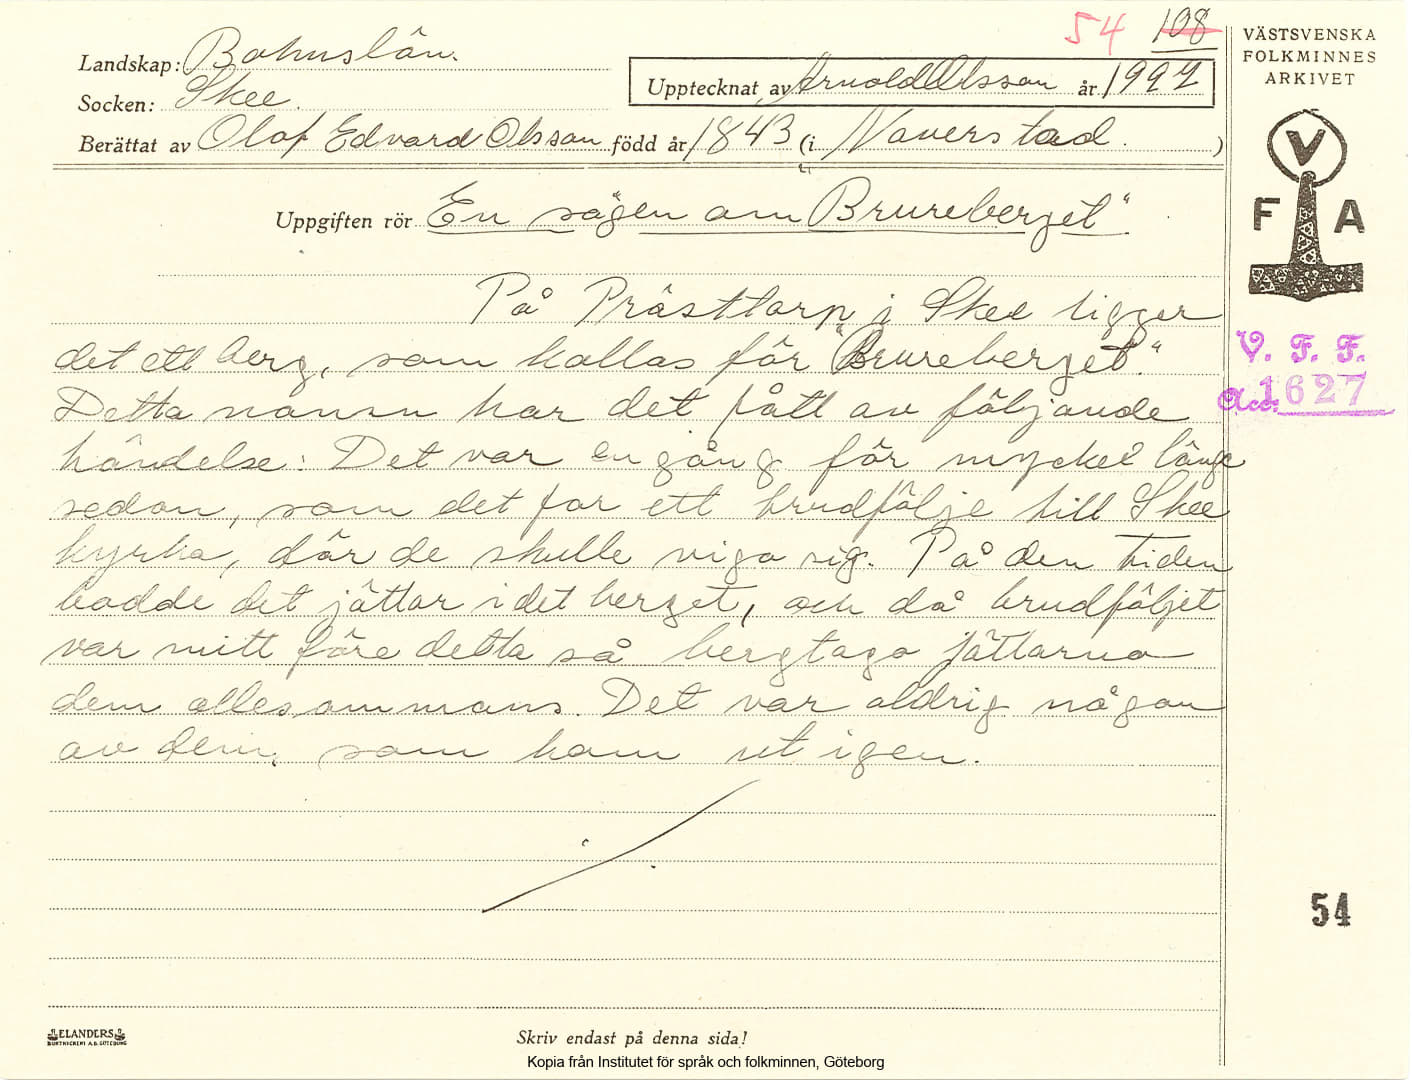 54 108
VÄSTSVENSKA
FOLKMINNES
ARKIVET
Landskap: Bohuslän.
Upptecknat av Arnold Olsson år 1927
Socken: Skee.
Berättat av Olof Edvard Olsson född år 1843 (i Naverstad. )
V
F A
Uppgiften rör En sägen om "Brureberget"
På Prästtorp i Skee ligger
det ett berg, som kallas för "Brureberget."
Detta namn har det fått av följande
händelse: Det var en gång för mycket länge
sedan, som det for ett brudfölje till Skee
kyrka, där de skulle viga sig. På den tiden
bodde det jättar i det berget, och då brudföljet
var mitt före detta så bergtogo jättarna
dem allesammans. Det var aldrig någon
av dem, som kom ut igen.
V. F. F.
Acc. 1627
54
ELANDERS
BOKTRYCKERI A.B. GÖTEBORG
Skriv endast på denna sida!
Kopia från Institutet för språk och folkminnen, Göteborg